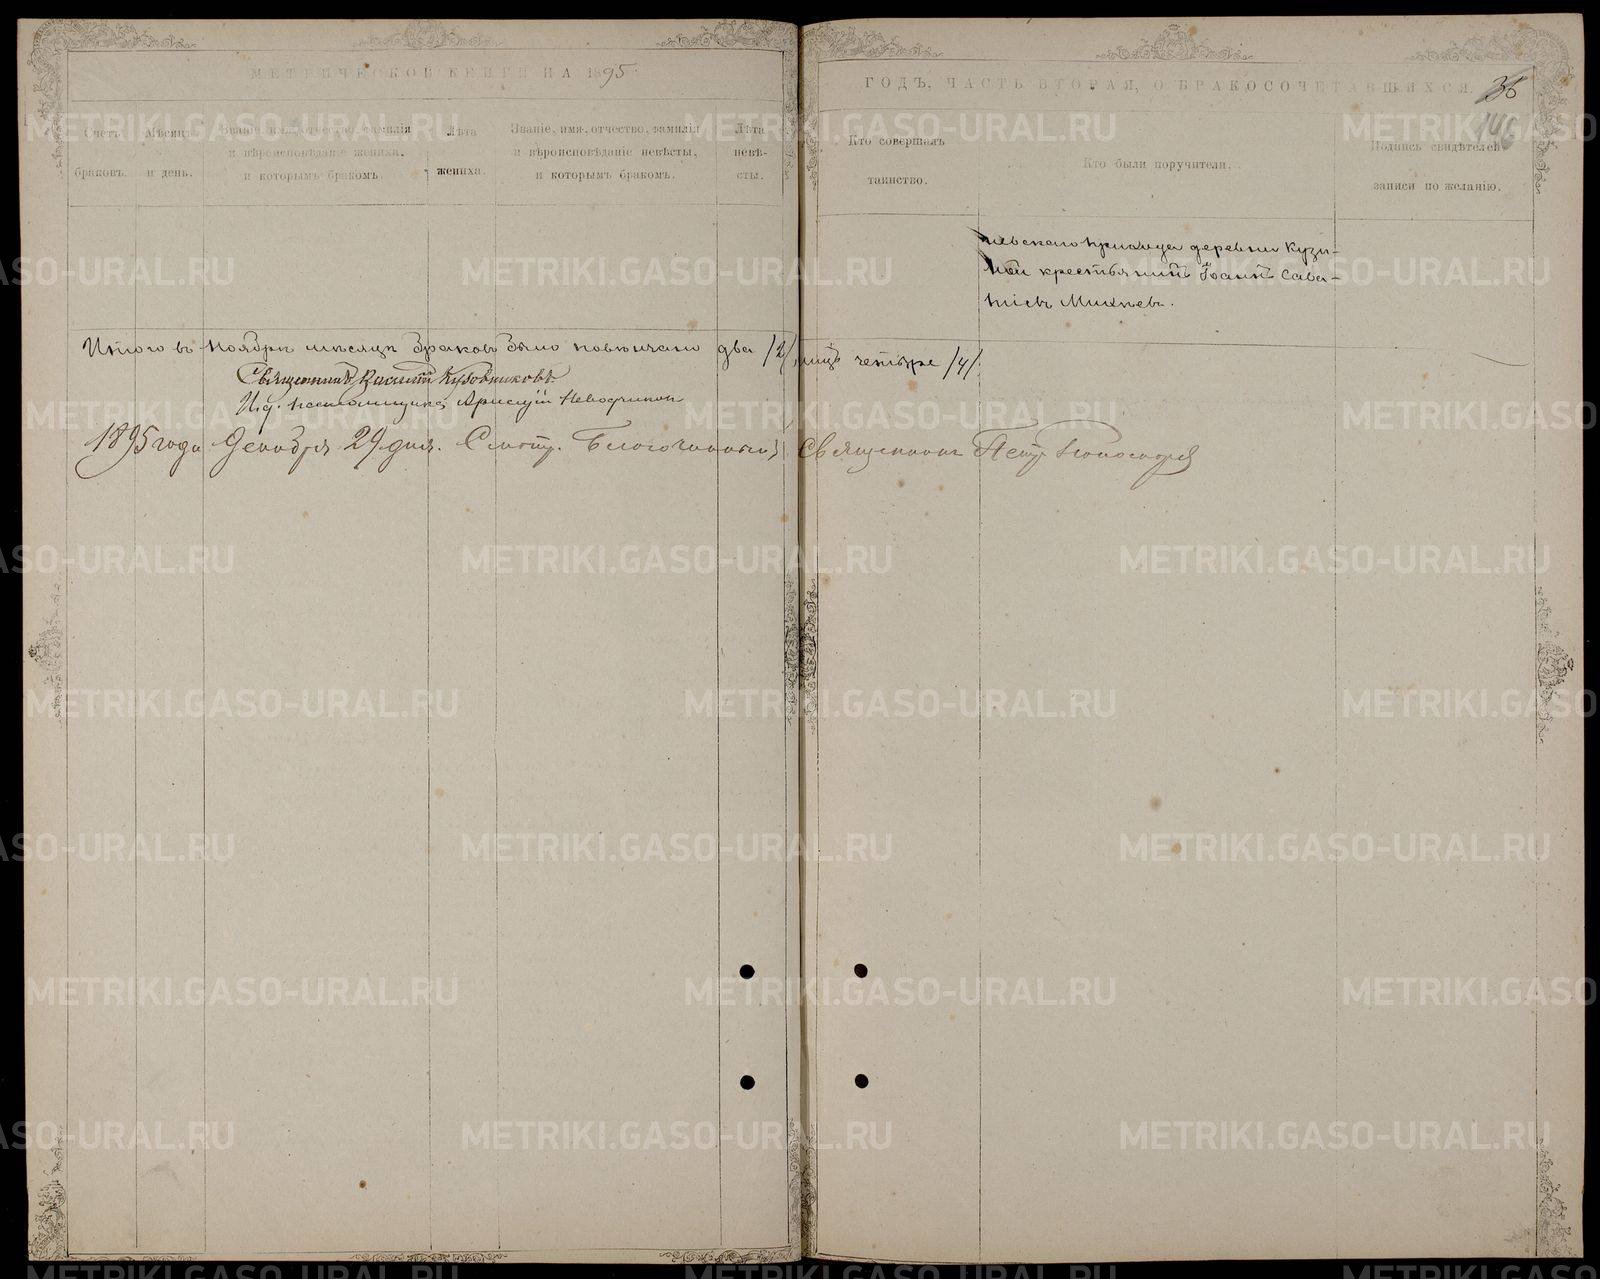 МЕТРИЧЕСКОЙ КНИГИ НА 1895
ГОДЪ, ЧАСТЬ ВТОРАЯ, О БРАКОСОЧЕТАВШИХСЯ.
36
146
Счетъ браковъ.
Мѣсяцъ и день.
Званіе, имя, отчество, фамилія
и вѣроисповѣданіе жениха,
и которымъ бракомъ.
Лѣта
жениха.
Званіе, имя, отчество, фамилія
и вѣроисповѣданіе невѣсты,
и которымъ бракомъ.
Лѣта
невѣ-
сты.
Кто совершалъ
таинство.
Кто были поручители.
Подпись свидѣтелей
записи по желанію.
деревни Кузи-
ной крестьянинъ Іоаннъ Сава-
тіевъ Михѣевъ.
Итого въ Ноябрѣ мѣсяцѣ браковъ было повѣнчано два /2/, лицъ четыре /4/.
Священникъ
И. д. псаломщика
1895 года Декабря 29 дня. Смотр. Благочинный Священникъ Петр
METRIKI.GASO-URAL.RU